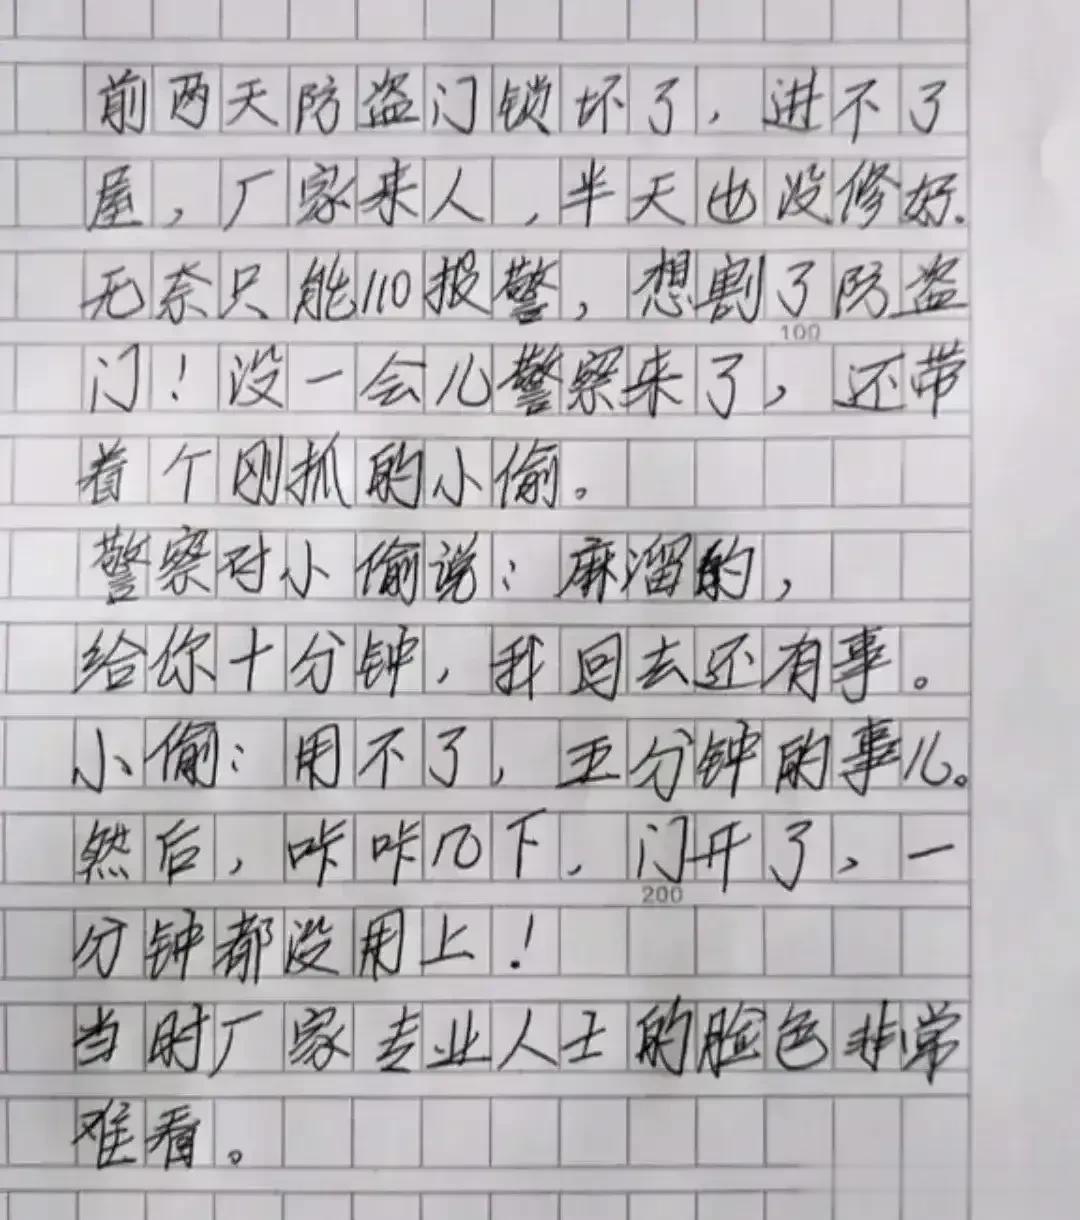 前两天防盗门锁坏了，进不了
屋，厂家来人，半天也没修好.
无奈只能110报警，想割了防盗
100
门！没一会儿警察来了，还带
着个刚抓的小偷。
警察对小偷说：麻溜的，
给你十分钟，我回去还有事。
小偷：用不了，五分钟的事儿。
然后，咔咔几下，门开了，一
200
分钟都没用上！
当时厂家专业人士的脸色非常
难看。